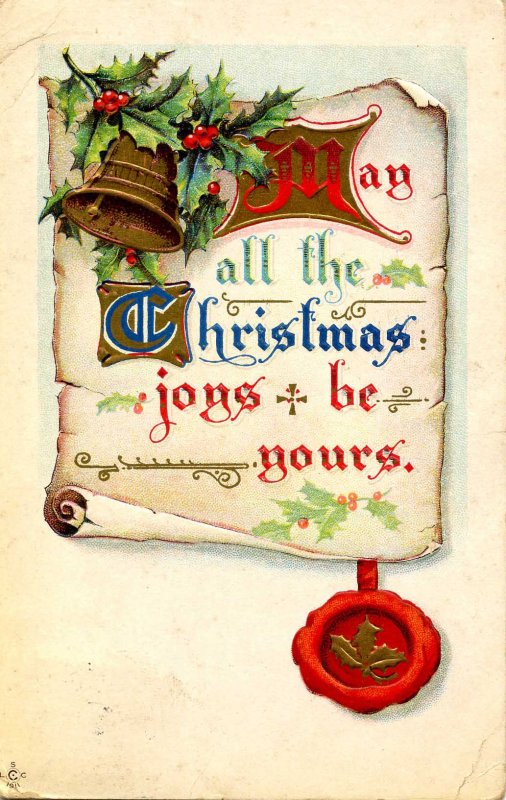 May
all the
Christmas:
joys + be
yours.
S
L C C
1911